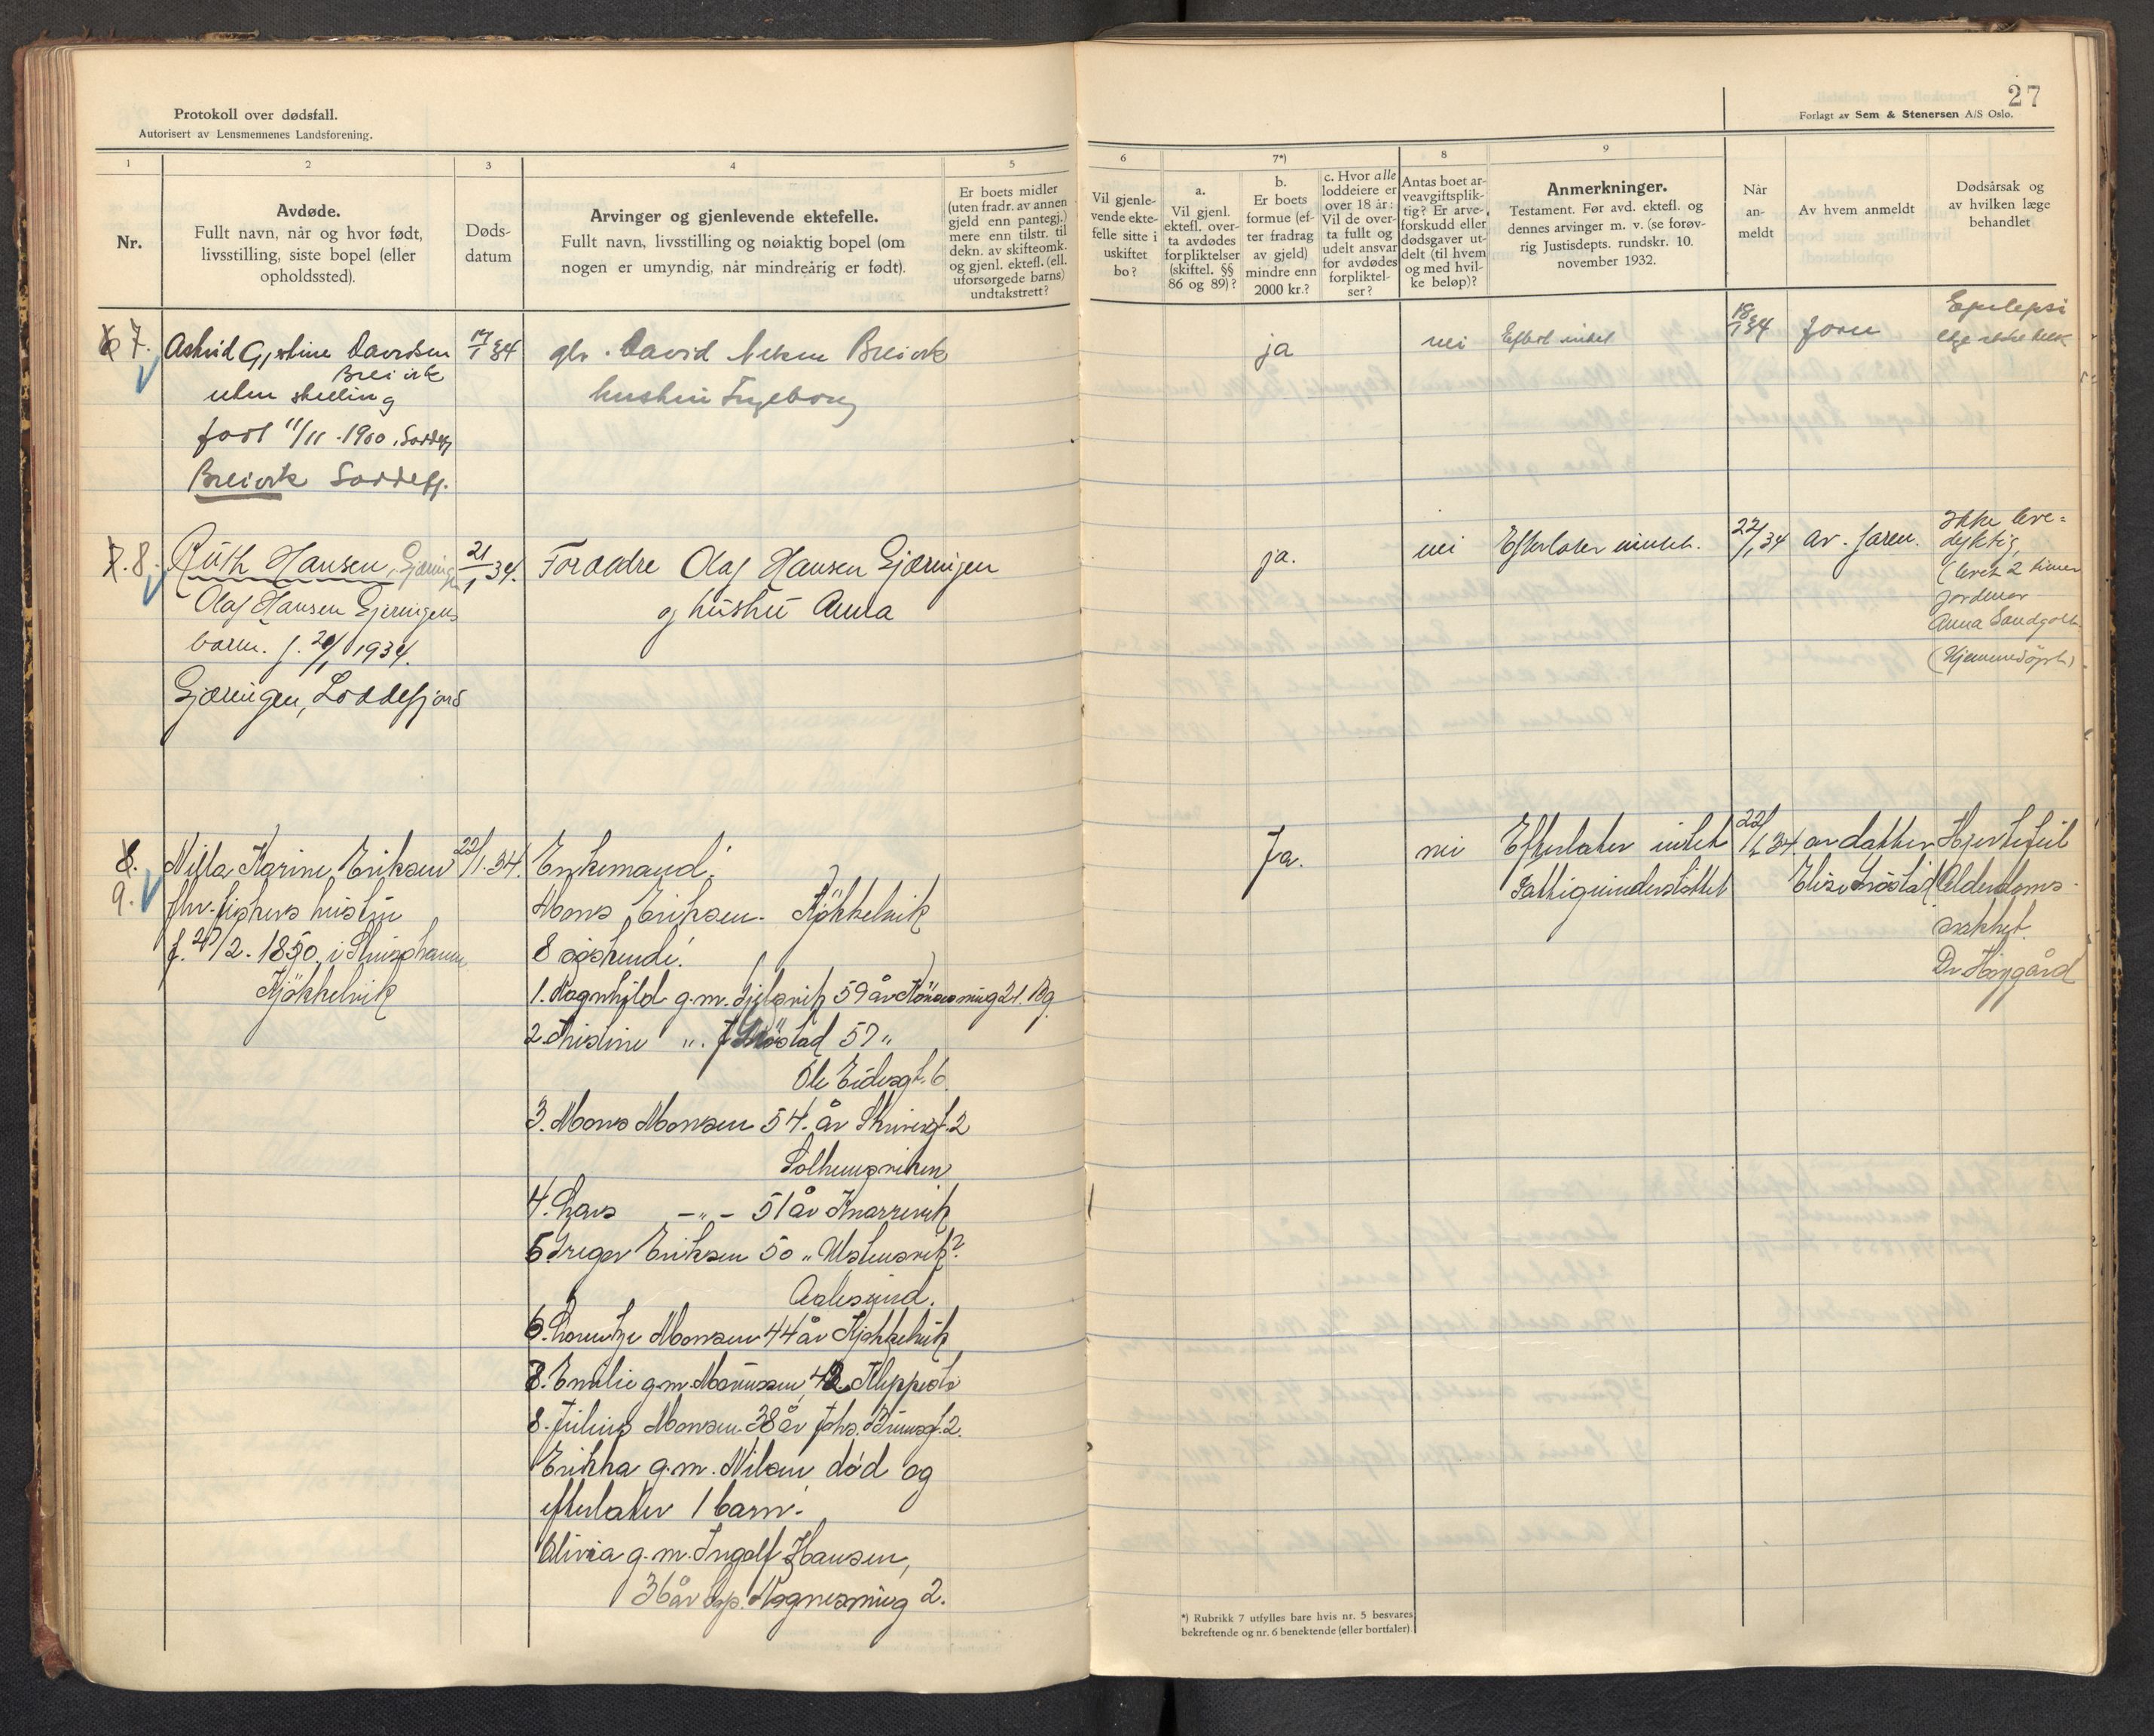 Protokoll over dødsfall.
Autorisert av Lensmennenes Landsforening.
27
Forlagt av Sem & Stenersen A/S Oslo.
1
2
3
4
5
6
7*)
8
9
Nr.
Avdøde.
Fullt navn, når og hvor født,
livsstilling, siste bopel (eller
opholdssted).
Døds-
datum
Arvinger og gjenlevende ektefelle.
Fullt navn, livsstilling og nøiaktig bopel (om
nogen er umyndig, når mindreårig er født).
Er boets midler
(uten fradr. av annen
gjeld enn pantegj.)
mere enn tilstr. til
dekn. av skifteomk.
og gjenl. ektefl. (ell.
uforsørgede barns)
undtakstrett?
Vil gjenle-
vende ekte-
felle sitte i
uskiftet
bo?
a.
Vil gjenl.
ektefl. over-
ta avdødes
forpliktelser
(skiftel. §§
86 og 89)?
b.
Er boets
formue (ef-
ter fradrag
av gjeld)
mindre enn
2000 kr.?
c. Hvor alle
loddeiere er
over 18 år:
Vil de over-
ta fullt og
udelt ansvar
for avdødes
forpliktel-
ser?
Antas boet ar-
veavgiftsplik-
tig? Er arve-
forskudd eller
dødsgaver ut-
delt (til hvem
og med hvil-
ke beløp)?
Anmerkninger.
Testament. Før avd. ektefl. og
dennes arvinger m. v. (se forøv-
rig Justisdepts. rundskr. 10.
november 1932.
Når
an-
meldt
Av hvem anmeldt
Dødsårsak og
av hvilken læge
behandlet
7.
Astrid Gjertine Davidsen
Breivik
uten stilling
født 11/11 1900 i Loddefj
Breivik Loddefj.
17/1 34
David Nilsen Breivik
hustru Ingeborg
ja
nei
Efterl intet
18/1 34
faren
Epilepsi
7. 8.
Ruth Hansen, Gjæringen
Olaf Hansen Gjeringens
barn. f. 20/1 1934.
Gjæringen, Loddefjord
21/1 34.
Foreldre Olaf Hansen Gjæringen
og hustru Anna
ja.
nei
Efterlater intet.
22/1 34
av faren.
Ikke leve=
dyktig
(levet 2 timer
jordmor
Anna Sandgolt.
(Hjemmedöpt)
8.
9.
Nilla Karine Eriksen
fhv. fiskers hustru
f. 20/2. 1850. i
Kjökkelvik
22/1. 34.
Enkemand:
Mons Eriksen. Kjökkelvik
8 egtefödte:
1. Ragnhild g.m. 59 år 21. Bg.
2. Kristine ". 57 "
Ole Eidesgt. 6.
3. Mons Monsen 54. år Skrivergt. 2
Solheimsviken
4. Lars -"- 51 år Knarrevik
5. Greger Eriksen 50 "
Aalesund.
6. Lorentze Monsen 44 år Kjøkkelvik
8. Emilie g.m. Magnussen 42 Kleppestö
8. Julius Monsen. 38 år Johs. Brunsgt. 2.
Erikka g.m. Nilsen död og
efterlater 1 barn.
Olivia g.m. Ingolf Hansen,
36 år bop. Magnesmug 2.
Ja.
nei
Efterlater intet
Fattigunderstöttet
22/1 34.
av datter
Hjertefeil
Alderdoms-
svakhet.
Dr Höygård
*) Rubrikk 7 utfylles bare hvis nr. 5 besvares
bekreftende og nr. 6 benektende (eller bortfaler).